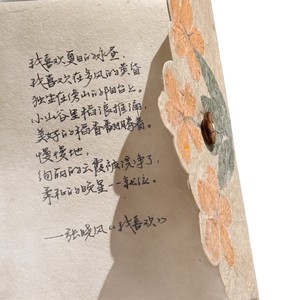 我喜欢夏日的永昼,
我喜欢在多风的黄昏
独坐在傍山的阳台上。
小山谷里稻浪推涌,
美好的稻香翻腾着。
慢慢地,
绚丽的云霞被浣净了,
柔和的晚星一一就位。
——张晓风《我喜欢》